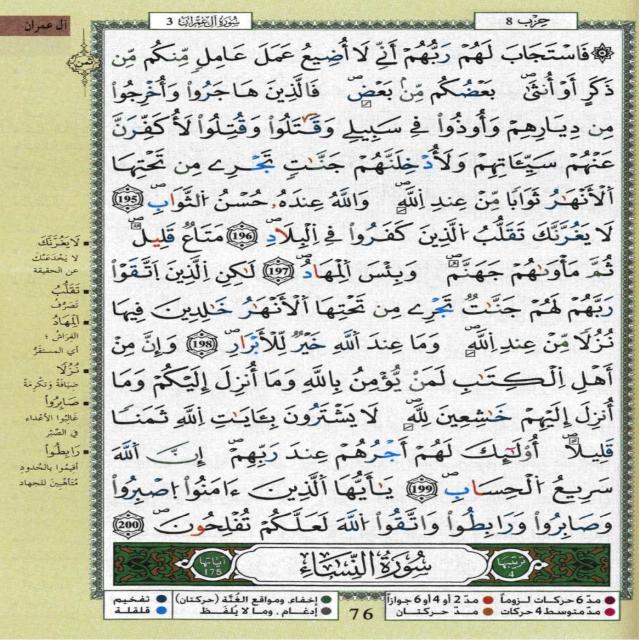 آل عمران
سُورَةُ آلِ عِمْرَانَ 3
حِزْب 8
ثمن
۞ فَاسْتَجَابَ لَهُمْ رَبُّهُمْ أَنِّي لَا أُضِيعُ عَمَلَ عَامِلٍ مِّنكُم مِّن
ذَكَرٍ أَوْ أُنثَىٰ بَعْضُكُم مِّنۢ بَعْضٍ فَالَّذِينَ هَاجَرُوا وَأُخْرِجُوا
مِن دِيَارِهِمْ وَأُوذُوا فِي سَبِيلِي وَقَٰتَلُوا وَقُتِلُوا لَأُكَفِّرَنَّ
عَنْهُمْ سَيِّـَٔاتِهِمْ وَلَأُدْخِلَنَّهُمْ جَنَّٰتٍ تَجْرِي مِن تَحْتِهَا
الْأَنْهَٰرُ ثَوَابًا مِّنْ عِندِ اللَّهِ وَاللَّهُ عِندَهُ حُسْنُ الثَّوَابِ 195
لَا يَغُرَّنَّكَ تَقَلُّبُ الَّذِينَ كَفَرُوا فِي الْبِلَٰدِ 196 مَتَاعٌ قَلِيلٌ
ثُمَّ مَأْوَىٰهُمْ جَهَنَّمُ وَبِئْسَ الْمِهَادُ 197 لَٰكِنِ الَّذِينَ اتَّقَوْا
رَبَّهُمْ لَهُمْ جَنَّٰتٌ تَجْرِي مِن تَحْتِهَا الْأَنْهَٰرُ خَٰلِدِينَ فِيهَا
نُزُلًا مِّنْ عِندِ اللَّهِ وَمَا عِندَ اللَّهِ خَيْرٌ لِّلْأَبْرَارِ 198 وَإِنَّ مِنْ
أَهْلِ الْكِتَٰبِ لَمَن يُؤْمِنُ بِاللَّهِ وَمَا أُنزِلَ إِلَيْكُمْ وَمَا
أُنزِلَ إِلَيْهِمْ خَٰشِعِينَ لِلَّهِ لَا يَشْتَرُونَ بِـَٔايَٰتِ اللَّهِ ثَمَنًا
قَلِيلًا أُولَٰئِكَ لَهُمْ أَجْرُهُمْ عِندَ رَبِّهِمْ إِنَّ اللَّهَ
سَرِيعُ الْحِسَابِ 199 يَٰأَيُّهَا الَّذِينَ ءَامَنُوا اصْبِرُوا
وَصَابِرُوا وَرَابِطُوا وَاتَّقُوا اللَّهَ لَعَلَّكُمْ تُفْلِحُونَ 200
ترتيبها 4
سُورَةُ النِّسَاءِ
آياتها 175
لَا يَغُرَّنَّكَ
لا يَخْدَعَنَّكَ
عن الحقيقة
تَقَلُّبُ
تَصَرُّفُ
الْمِهَادُ
الفِرَاشُ ؛
أي المستقَرُّ
نُزُلًا
ضِيَافَةً وَتَكْرِمَةً
صَابِرُوا
غَالِبُوا الأعْدَاءَ
في الصَّبْرِ
رَابِطُوا
أقيمُوا بالحُدُودِ
مُتَأَهِّبِينَ للجهاد
مدّ 6 حركات لزوماً
مدّ 2 أو 4 أو 6 جوازاً
إخفاء، ومواقع الغُنَّة (حركتان)
تفخيم
مدّ متوسط 4 حركات
مـدّ حركتـان
إدغام، وما لا يُلفَظ
قلقلة
76